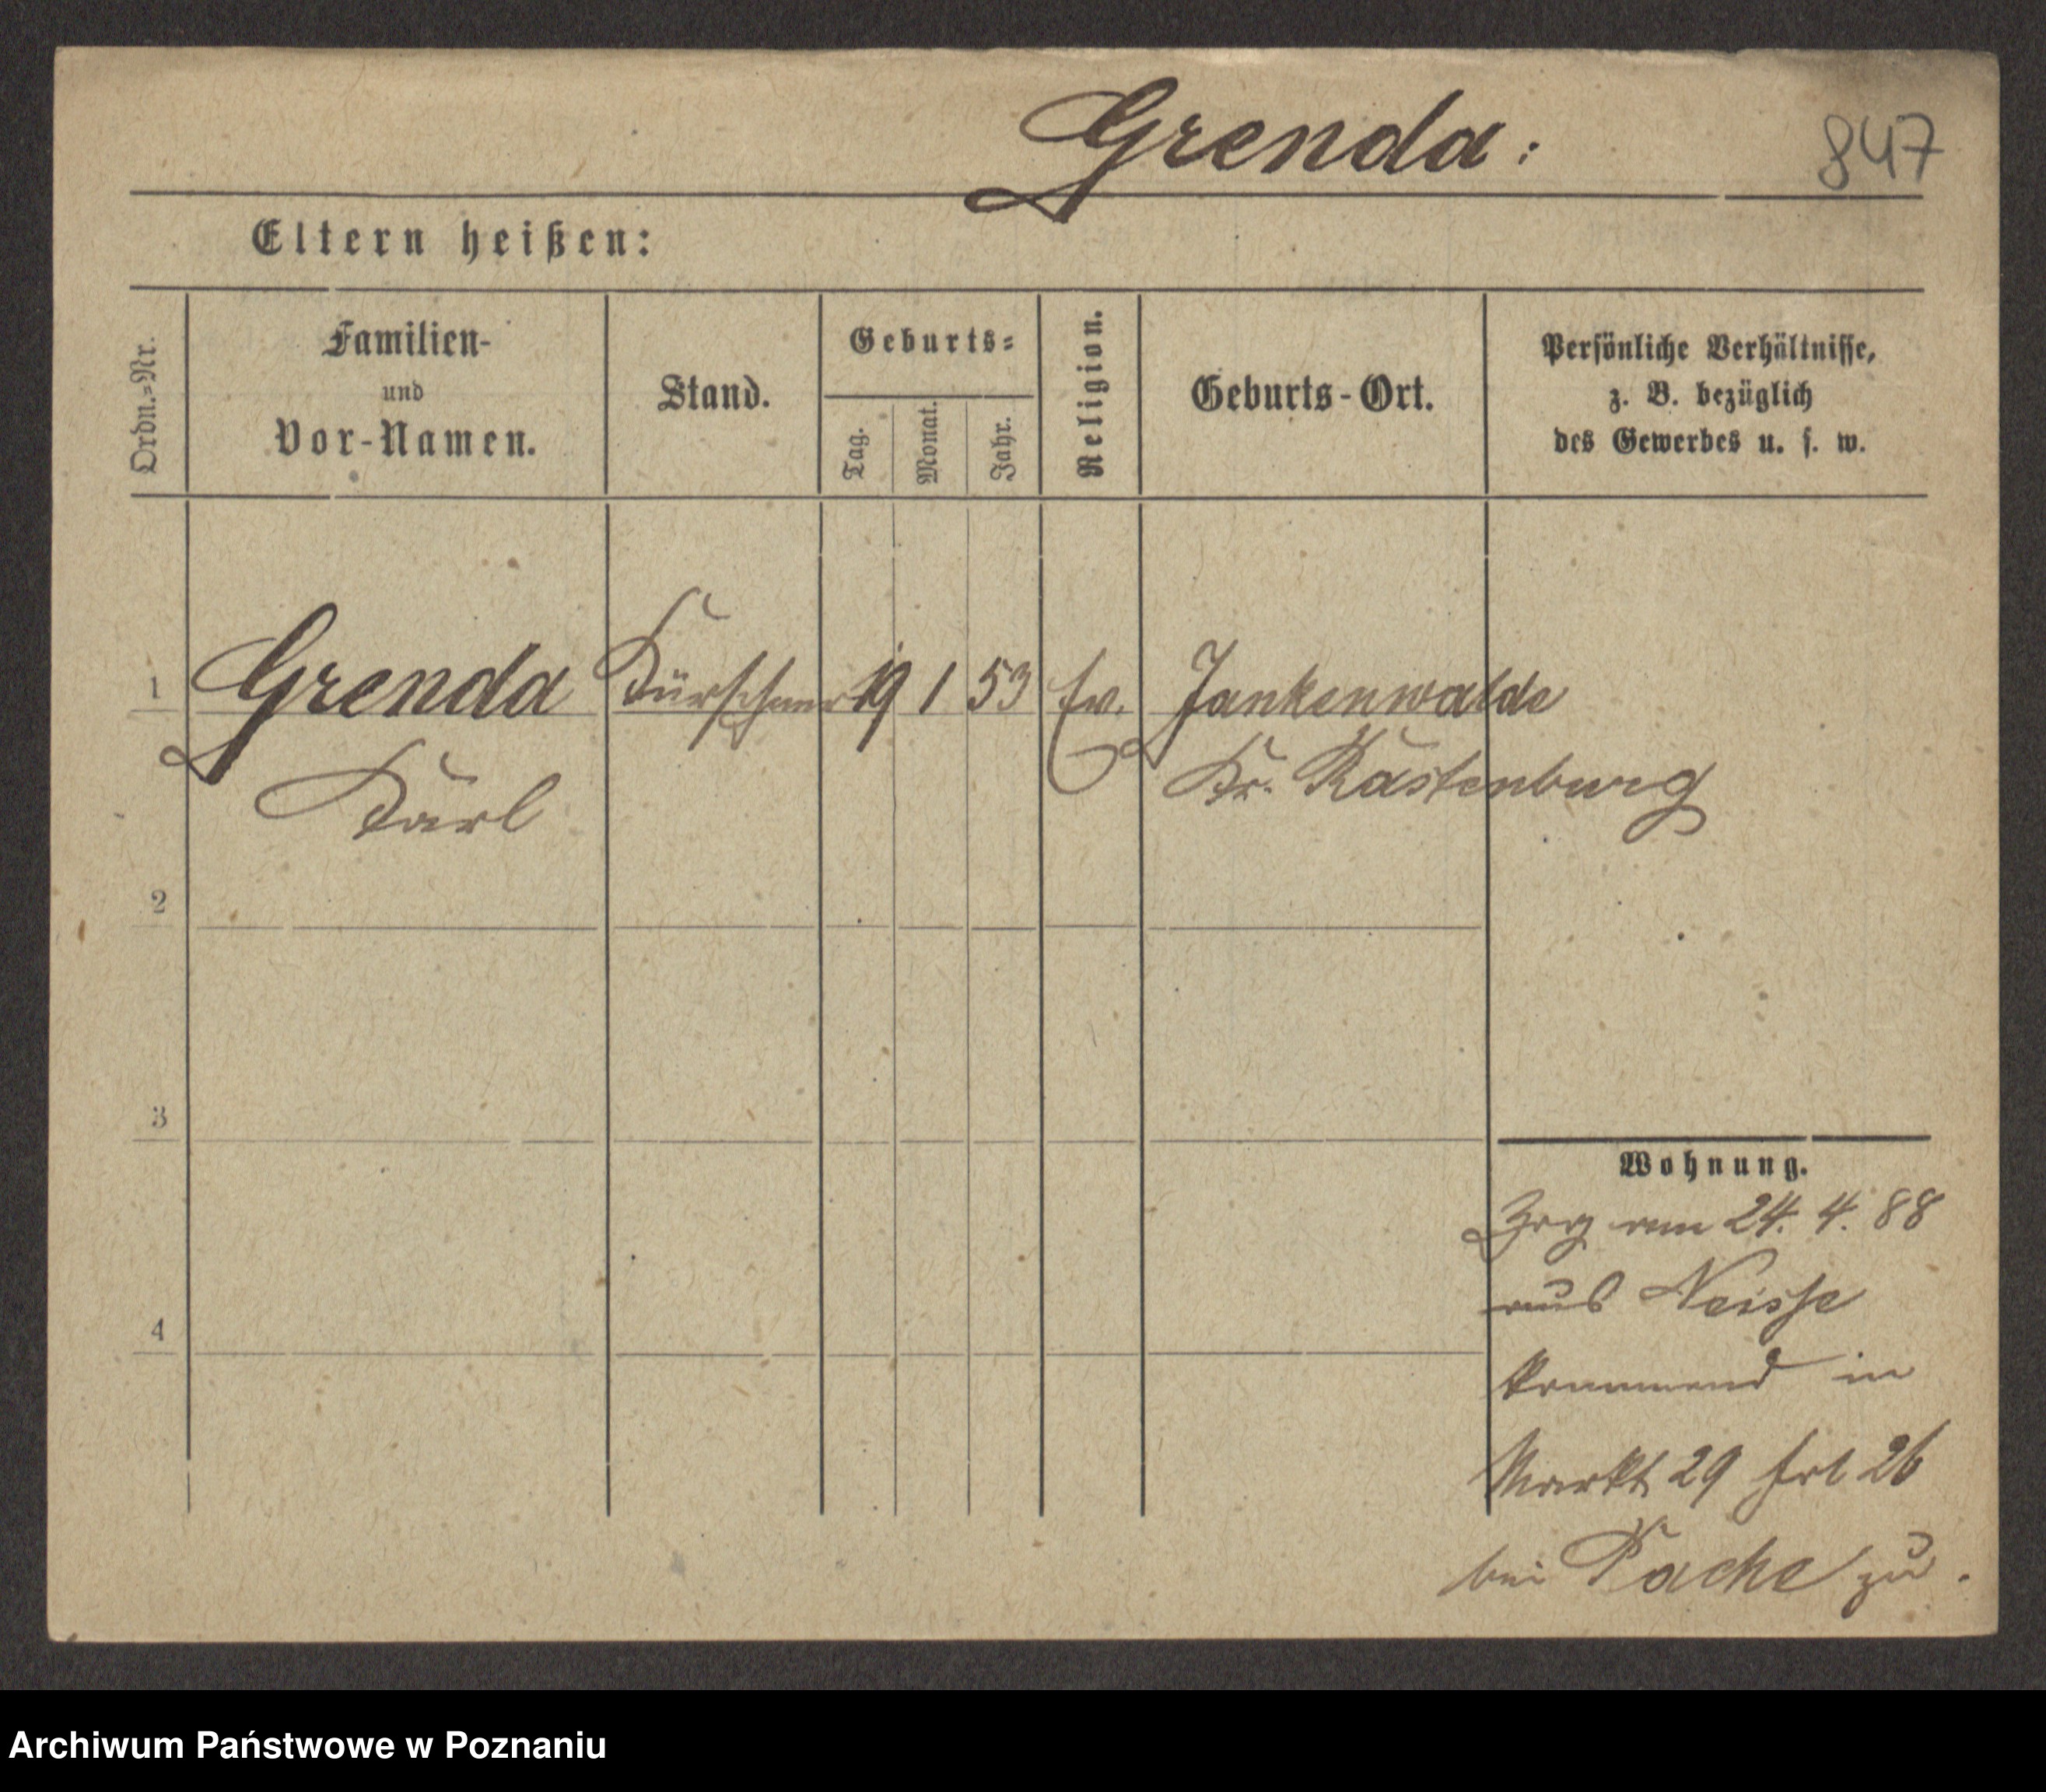 Grenda:
847
Eltern heißen:
Ordn.=Nr.
Familien-
und
Vor-Namen.
Stand.
Geburts=
Tag.
Monat.
Jahr.
Religion.
Geburts-Ort.
Persönliche Verhältnisse,
z. B. bezüglich
des Gewerbes u. s. w.
1 Grenda Kürschner 19 1 53 Ev. Jankenwalde
Karl Kr. Rastenburg
2
3
4
Wohnung.
Zog am 24. 4. 88
aus Neisse
kommend in
Markt 29 26
bei Pache zu.
Archiwum Państwowe w Poznaniu